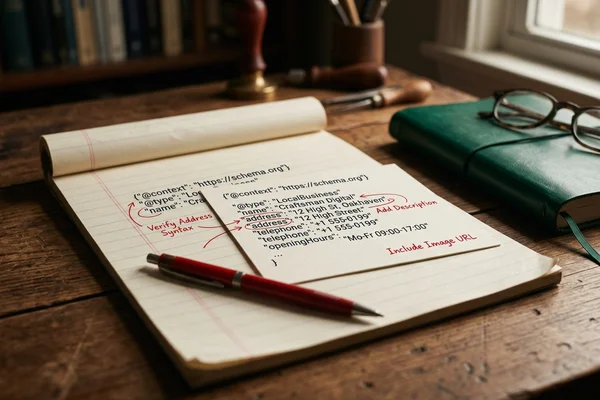 {"@context": "https://schema.org"}
{"@type": "Loc
"name": "Cra
Verify Address
Syntax
{"@context": "https://schema.org"}
"@type": "LocalBusiness"
"name": "Craftsman Digital"
"address": "12 High St, Oakhaven"
"address": "12 High Street"
"elephone": "+1 555-0199"
"telephone": "+1 555-0199"
"openingHours": "Mo-Fr 09:00-17:00"
...
}
Add Description
Include Image URL